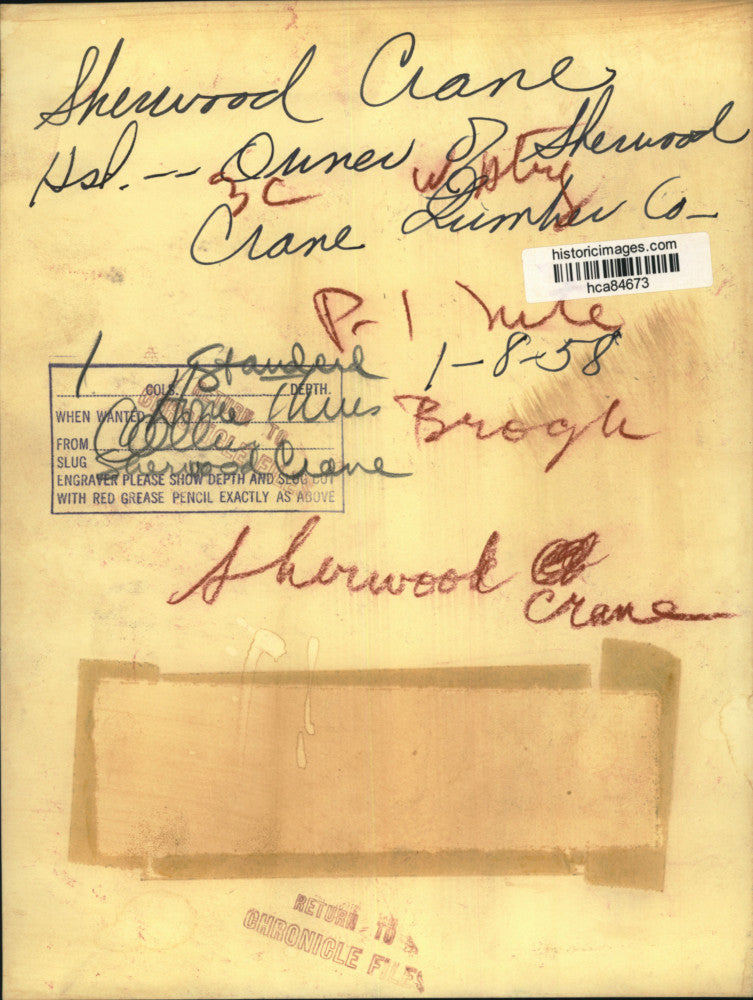 Sherwood Crane
Hsl. -- Owner of Sherwood
3C
Crane Lumber Co-
historicimages.com
hca84673
P-1
1 Standard 1-8-58
COLS. DEPTH.
WHEN WANTED
FROM
SLUG Sherwood Crane
ENGRAVER PLEASE SHOW DEPTH AND SLUG CUT
WITH RED GREASE PENCIL EXACTLY AS ABOVE
Sherwood
Crane
RETURN TO
CHRONICLE FILES